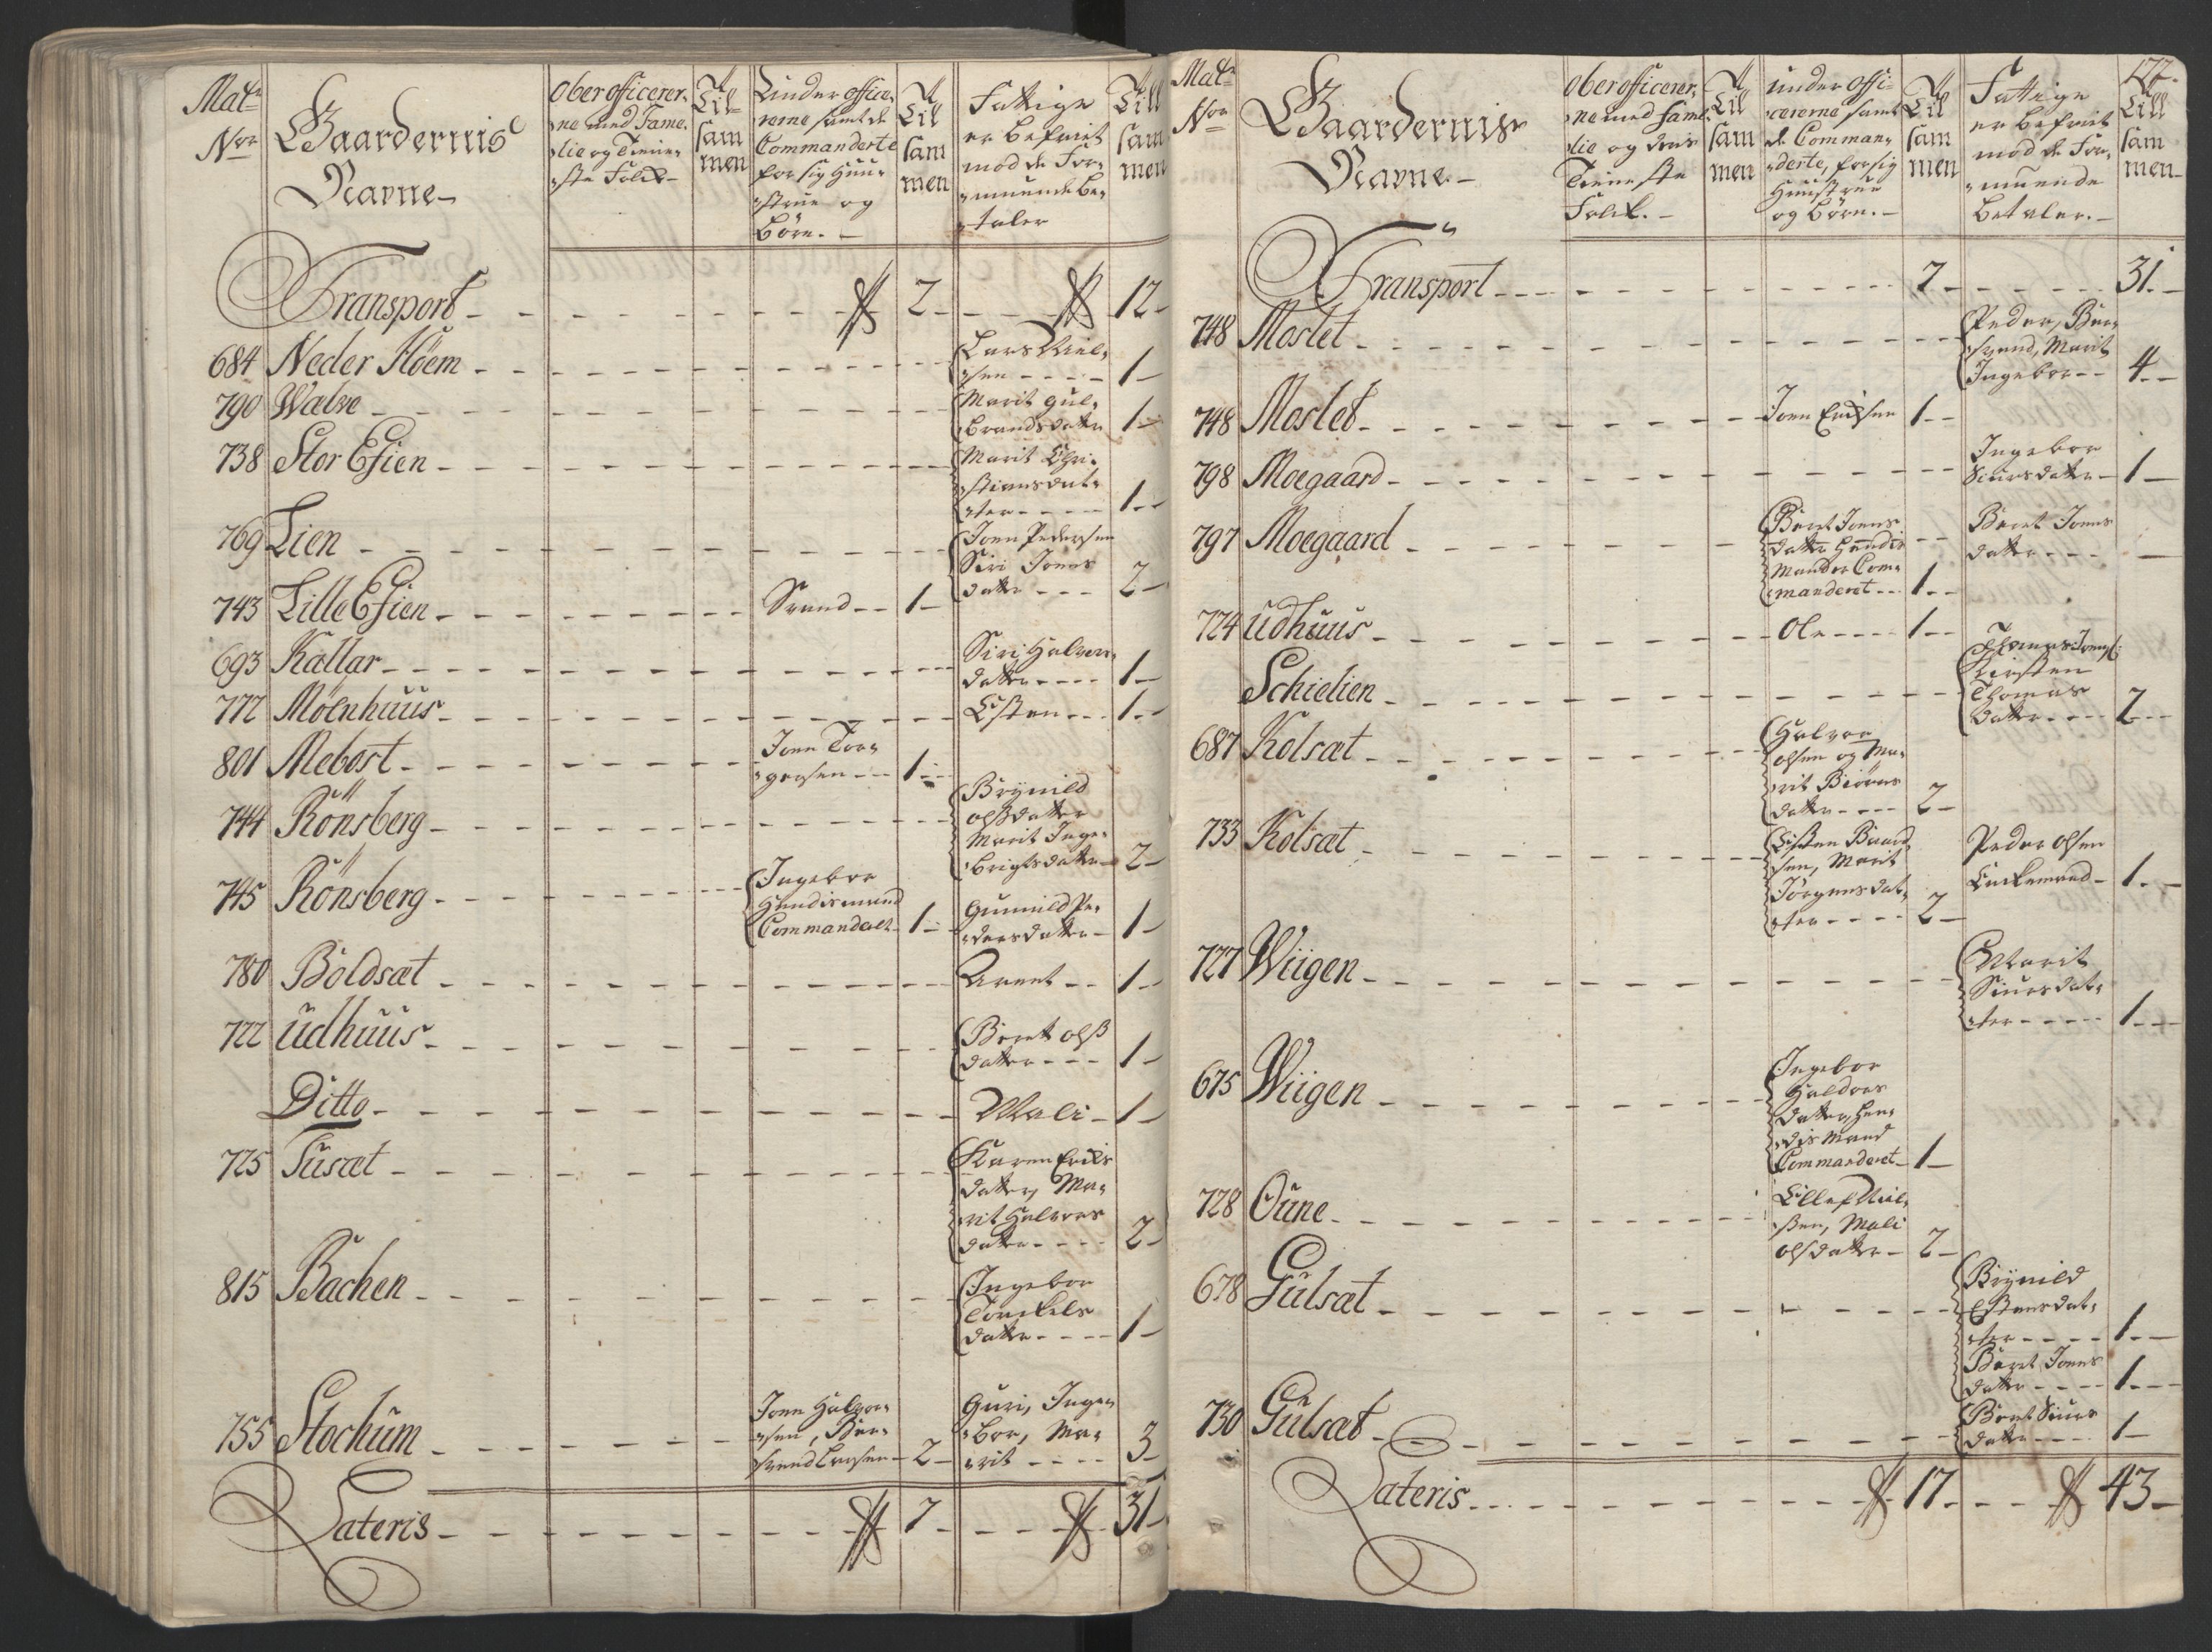 Matr Nor
Gaardernis Navne
Oberofficerer,
ne med Fame,
lie og Tiene,
ste Folck
Til
sam
men
Underoffice,
rerne samt de
Commanderte
for sig Huu,
strue og
Börn.
Til
sam
men
Fattige
er befriet
mod de For,
muende be,
taler
Till
sam
men
Transport 2 12
684 Neder Höem
Lars Niel,
sen 1
790 Walse
Marit Gul,
brandsdatter 1
738 Stor Esien
Marit Chri,
stiansdat,
ter 1
769 Lien
Joen Pedersen
Siri Joens
datter 2
743 Lille Esien Svend 1
693 Kallar
Siri Halvers
datter 1
777 Mölnhuus Esten 1
801 Mebost
Joen Tor,
gersen 1
744 Rönsberg
Brynild
olsdatter
Marit Inge,
brigtsdatter 2
745 Rönsberg
Ingebor
Hendis mand
Commandert 1
Gunnild Pe,
dersdatter 1
780 Boldsæt Arent 1
722 Udhuus
Beret ols
datter 1
Ditto Mali 1
725 Tusæt
Karen Erichs
datter, Ma,
rit Halvors
datter 2
815 Bachen
Ingebor
Torckels
datter 1
755 Stochum
Joen Halvor,
sen, Ber,
svend Larsen 2
Guri, Inge,
bor, Ma,
rit 3
Lateris 7 31
177.
Matr Nor
Gaardernis Navne
Oberofficerer,
ne med Fami,
lie og deris
Tieneste
Folck.
Til
sam
men
Underoffi,
cererne samt
de Comman,
derte, for sig
Huustrue
og Börn.
Til
sam
men
Fattige
er befriet
mod de For,
muende
betaler.
Till
sam
men
Transport 7 31
748 Moslet
Peder, Ber,
svend, Marit
Ingebor 4
748 Moslet Joen Erichsen 1
798 Moegaard
Ingebor
Siursdatter 1
797 Moegaard
Beret Joens
datter Hendis
Mander Com,
manderet 1
Beret Joens
datter
724 Udhuus Ole 1
Schielien
Thomas Joens:
Kirsten
Thomas
datter 2
687 Kolsæt
Halvor
olsen og Ma,
rit Biörns
datter 2
733 Kolsæt
Esten Baard
sen, Marit
Jörgensdat,
ter 2
Peder olsen
1
727 Wiigen
Marit
Siursdat,
ter 1
675 Wiigen
Ingebor
Haldors
datter, Hen,
dis Mand
Commanderet 1
728 Oune
Ellef Niel,
sen, Mali
olsdatter 2
678 Gulsæt
Brynild
Estensdat,
ter 1
Beret Joens
datter 1
730 Gulsæt
Beret Siurs
datter 1
Lateris 17 43